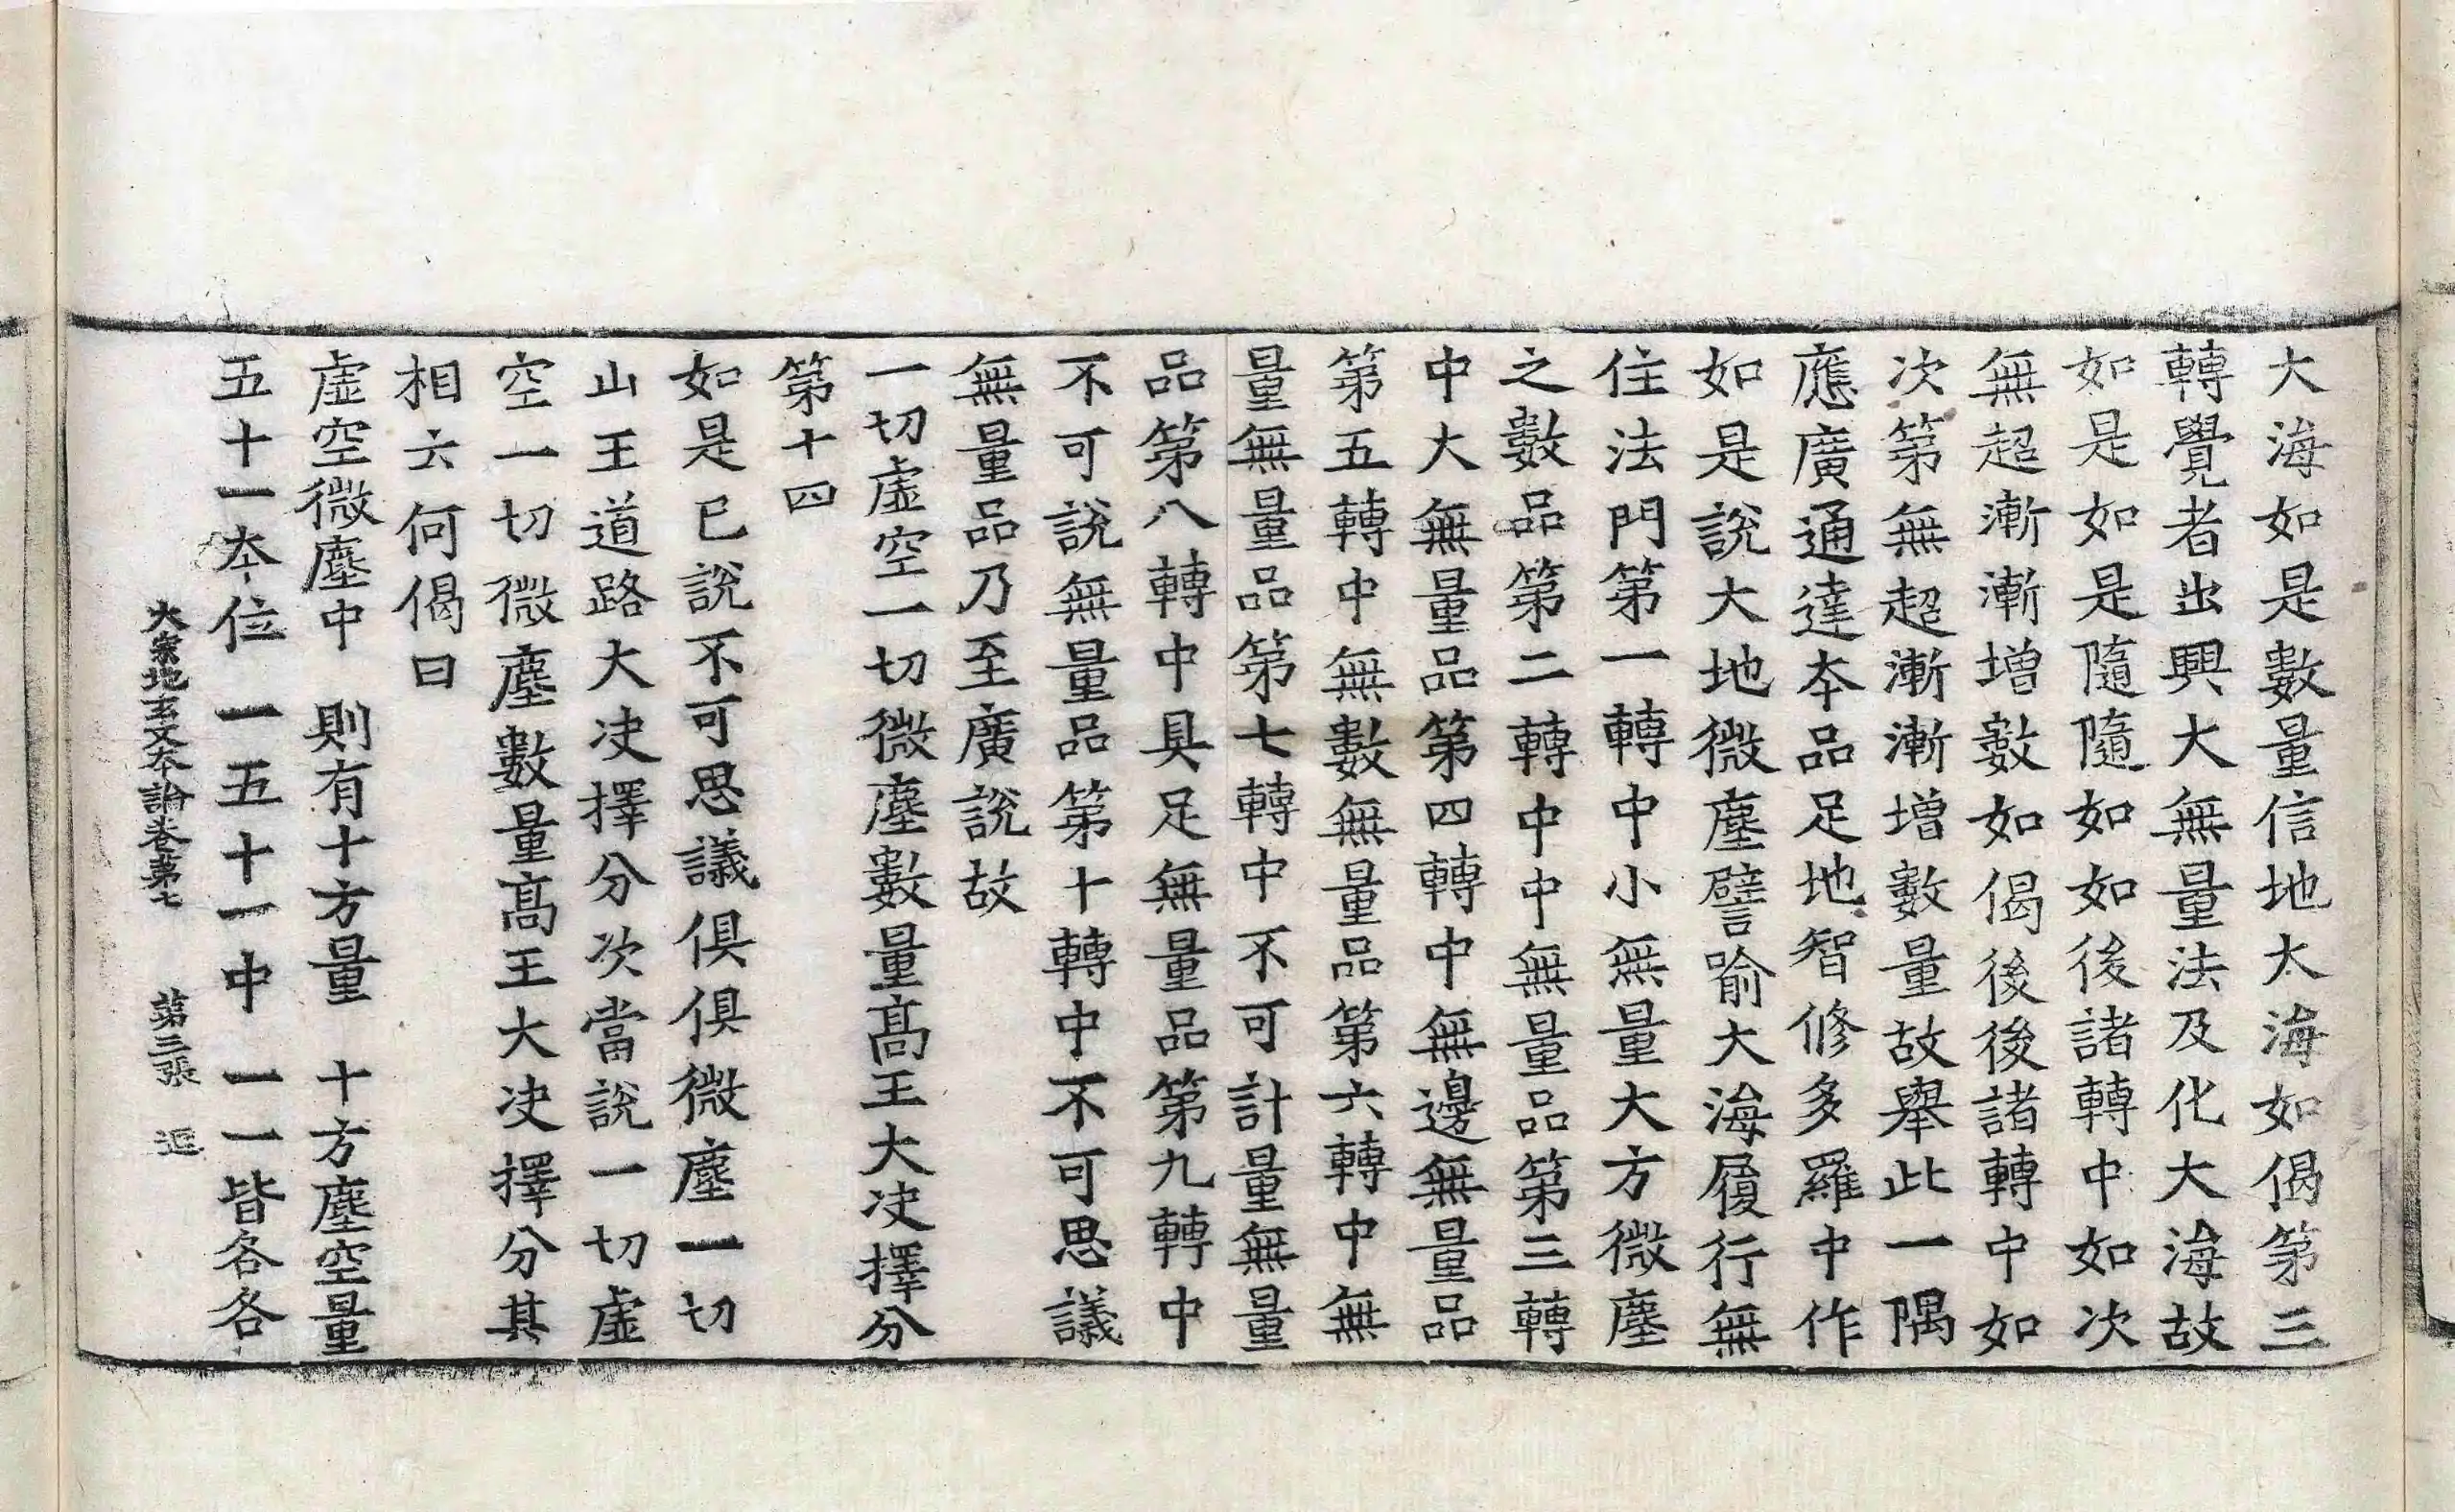 大海如是數量信地大海如偈第三
轉覺者出興大無量法及化大海故
如是如是隨隨如如後諸轉中如次
無超漸漸增數如偈後後諸轉中如
次第無超漸漸增數量故舉此一隅
應廣通達夲品足地智修多羅中作
如是說大地微塵譬喻大海履行無
住法門第一轉中小無量大方微塵
之數品第二轉中中無量品第三轉
中大無量品第四轉中無邊無量品
第五轉中無數無量品第六轉中無
量無量品第七轉中不可計量無量
品第八轉中具足無量品第九轉中
不可說無量品第十轉中不可思議
無量品乃至廣說故
一切虛空一切微塵數量髙王大决擇分
第十四
如是已說不可思議俱俱微塵一切
山王道路大决擇分次當說一切虛
空一切微塵數量髙王大决擇分其
相云何偈曰
虛空微塵中　則有十方量　十方塵空量
五十一夲位　一五十一中　一一皆各各
大宗地玄文夲論卷第七　第三張　逥